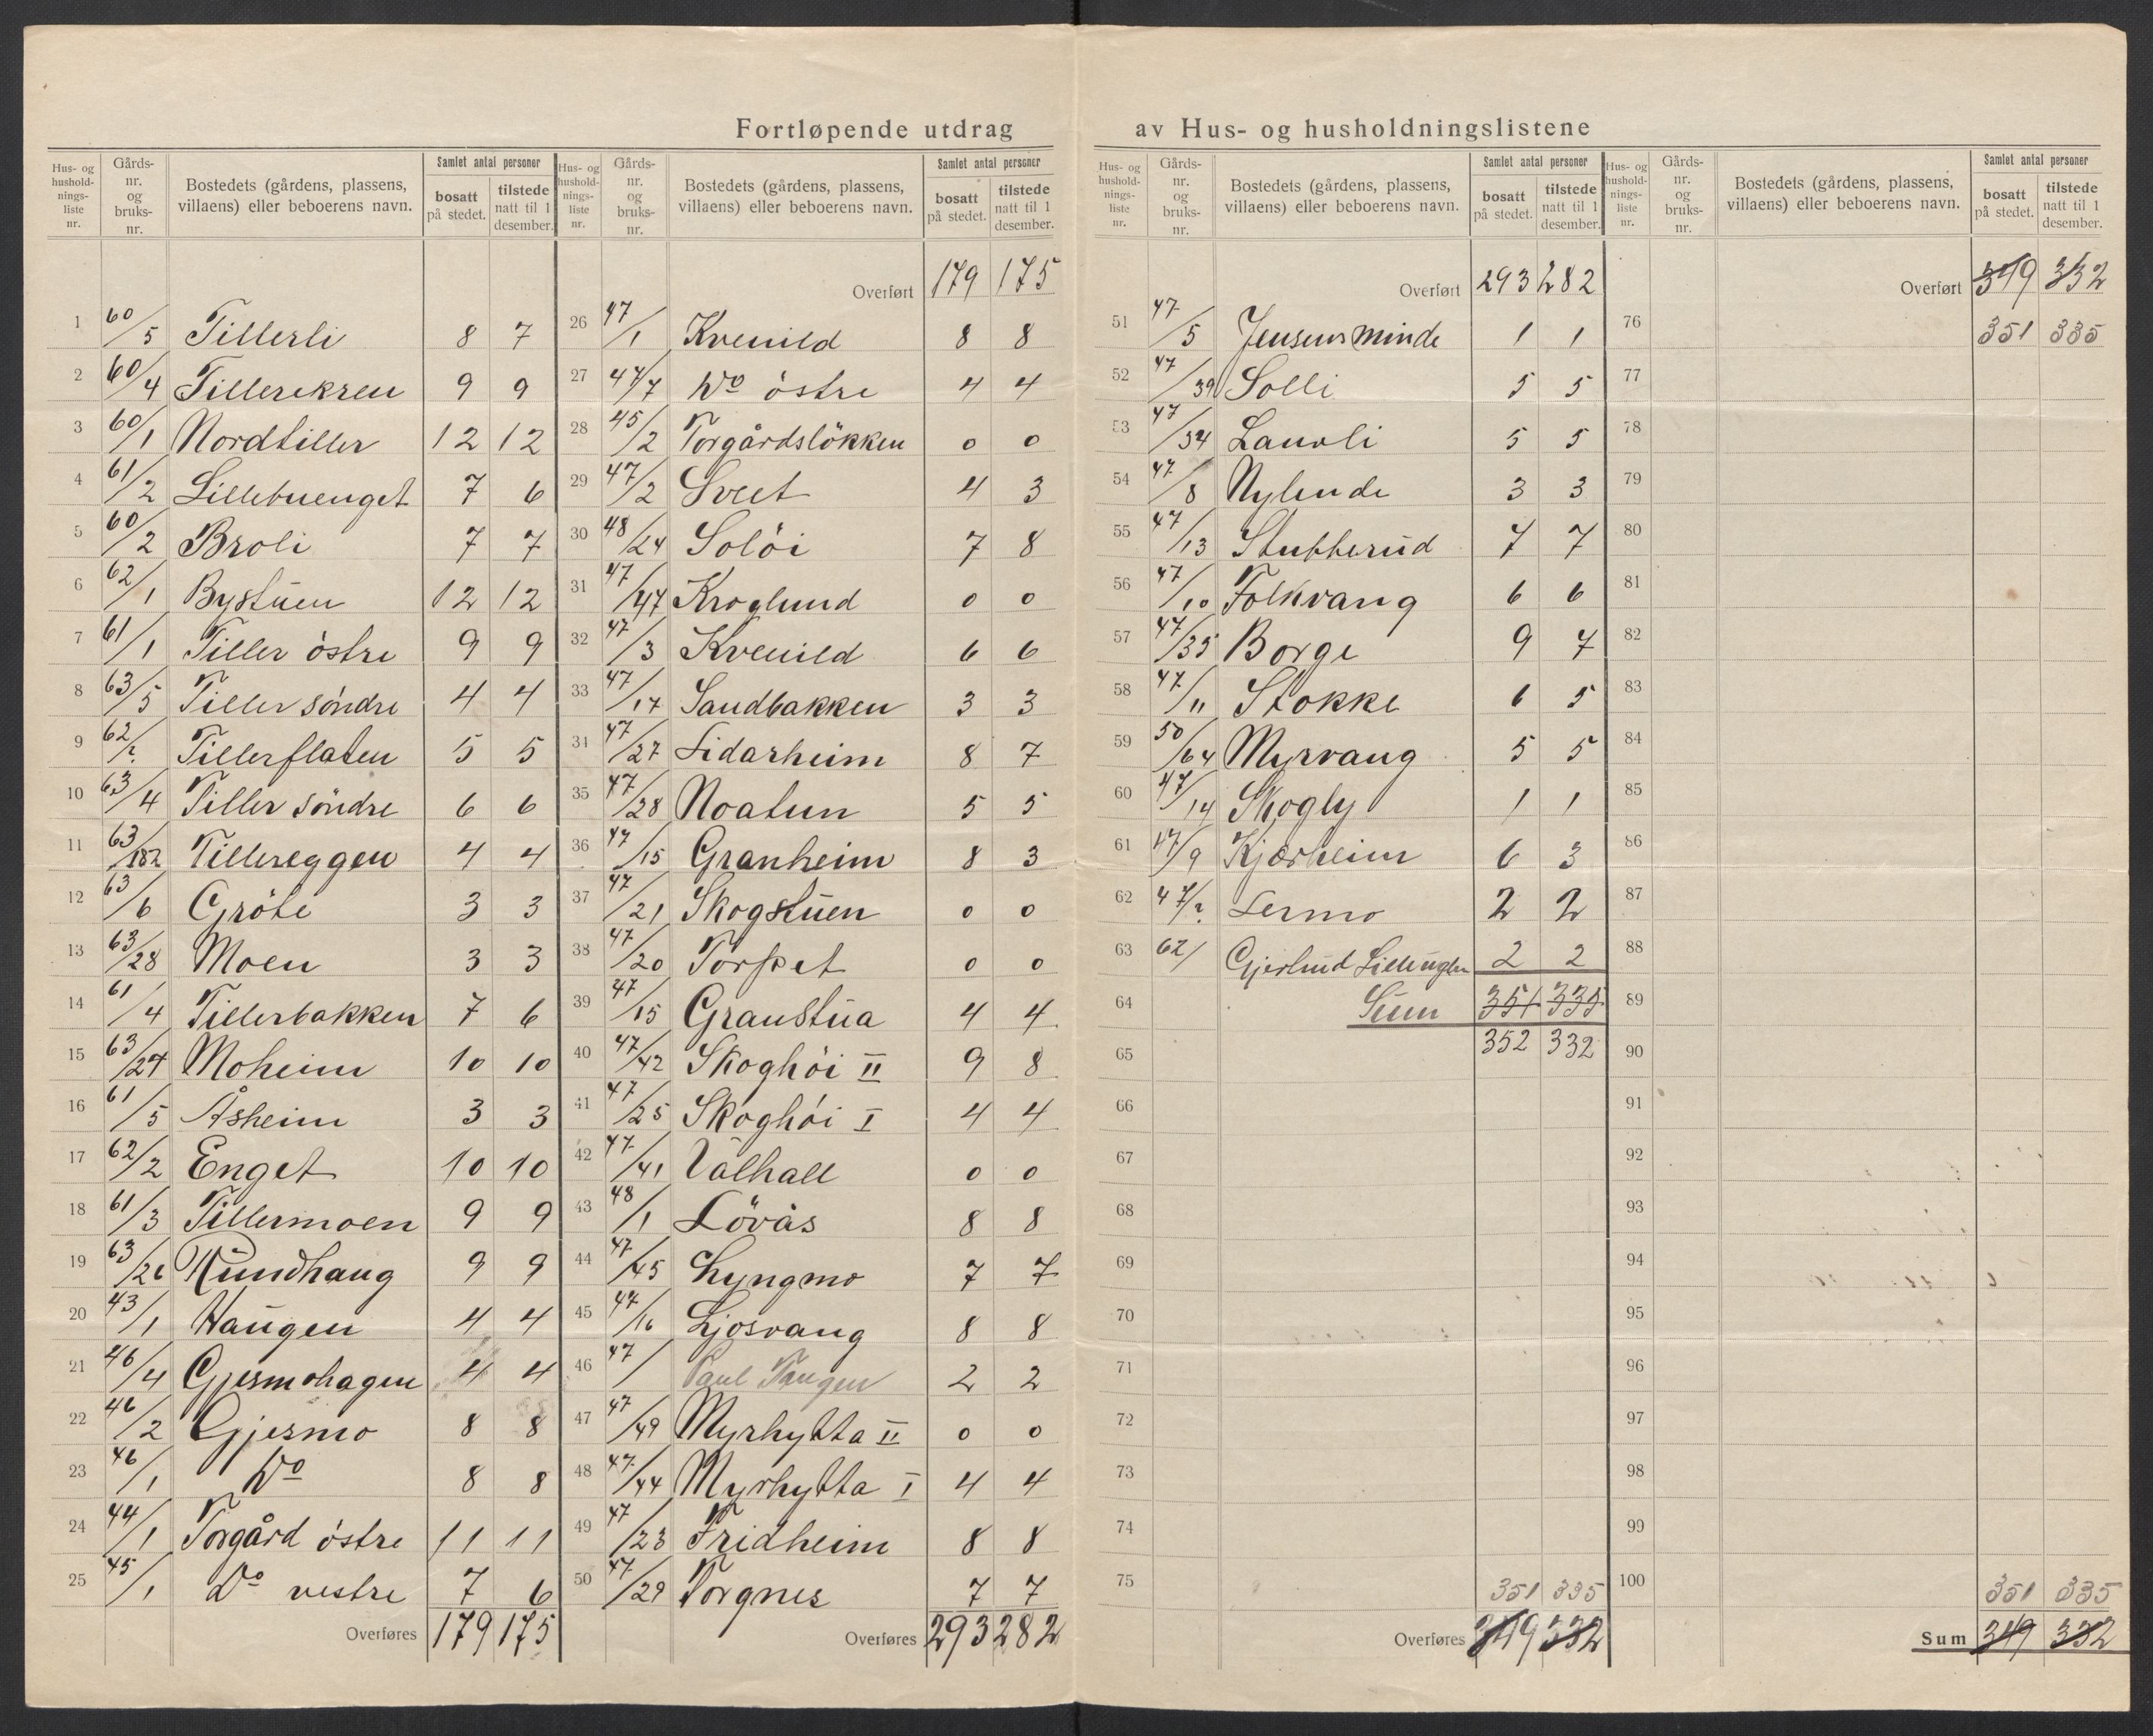 Fortløpende utdrag av Hus- og husholdningslistene
Hus- og hushold-nings-liste nr. Gårds-nr. og bruks-nr. Bostedets (gårdens, plassens, villaens) eller beboerens navn. Samlet antal personer bosatt på stedet. tilstede natt til 1 desember.
1 60/5 Tillerli 8 7
2 60/4 Tillerekren 9 9
3 60/1 Nordtiller 12 12
4 61/2 Lillebuenget 7 6
5 60/2 Broli 7 7
6 62/1 Bystuen 12 12
7 61/1 Tiller östre 9 9
8 63/5 Tiller söndre 4 4
9 62/? Tillerflaten 5 5
10 63/4 Tiller söndre 6 6
11 63/182 Tillereggen 4 4
12 63/6 Gröte 3 3
13 63/28 Moen 3 3
14 61/4 Tillerbakken 7 6
15 63/27 Moheim 10 10
16 61/5 Åsheim 3 3
17 62/2 Enget 10 10
18 61/3 Tillermoen 9 9
19 63/26 Rundhaug 9 9
20 43/1 Haugen 4 4
21 46/4 Gjesmohagen 4 4
22 46/2 Gjesmo 8 8
23 46/1 Do 8 8
24 44/1 Torgård östre 11 11
25 45/1 Do vestre 7 6
Overføres 179 175
Hus- og hushold-nings-liste nr. Gårds-nr. og bruks-nr. Bostedets (gårdens, plassens, villaens) eller beboerens navn. Samlet antal personer bosatt på stedet. tilstede natt til 1 desember.
Overført 179 175
26 47/1 Kvenild 8 8
27 47/7 Do östre 4 4
28 45/2 Torgårdslökken 0 0
29 47/2 Sveet 4 3
30 48/24 Solöi 7 8
31 47/47 Kroglund 0 0
32 47/3 Kvenild 6 6
33 47/17 Sandbakken 3 3
34 47/27 Lidarheim 8 7
35 47/28 Noatun 5 5
36 47/15 Granheim 8 3
37 47/21 Skogstuen 0 0
38 47/20 Torpet 0 0
39 47/15 Granstua 4 4
40 47/42 Skoghöi II 9 8
41 47/25 Skoghöi I 4 4
42 47/41 Valhall 0 0
43 48/1 Lövås 8 8
44 47/45 Lyngmo 7 7
45 47/16 Ljosvang 8 8
46 47/ Paul Tangen 2 2
47 47/49 Myrhytta II 0 0
48 47/44 Myrhytta I 4 4
49 47/23 Fridheim 8 8
50 47/29 Torgnes 7 7
Overføres 293 282
Hus- og hushold-nings-liste nr. Gårds-nr. og bruks-nr. Bostedets (gårdens, plassens, villaens) eller beboerens navn. Samlet antal personer bosatt på stedet. tilstede natt til 1 desember.
Overført 293 282
51 47/5 Jensens minde 1 1
52 47/39 Solli 5 5
53 47/34 Lauvli 5 5
54 47/8 Nylende 3 3
55 47/13 Stubberud 7 7
56 47/10 Folkvang 6 6
57 47/35 Borge 9 7
58 47/11 Stokke 6 5
59 50/64 Myrvang 5 5
60 47/14 Skogly 1 1
61 47/9 Kjærheim 6 3
62 47/? Lermo 2 2
63 62/ Gjerlud 2 2
64 Sum 351 335
65 352 332
66
67
68
69
70
71
72
73
74
75 351 335
Overføres 349 332
Hus- og hushold-nings-liste nr. Gårds-nr. og bruks-nr. Bostedets (gårdens, plassens, villaens) eller beboerens navn. Samlet antal personer bosatt på stedet. tilstede natt til 1 desember.
Overført 349 332
76 351 335
77
78
79
80
81
82
83
84
85
86
87
88
89
90
91
92
93
94
95
96
97
98
99
100 351 335
Sum 349 332